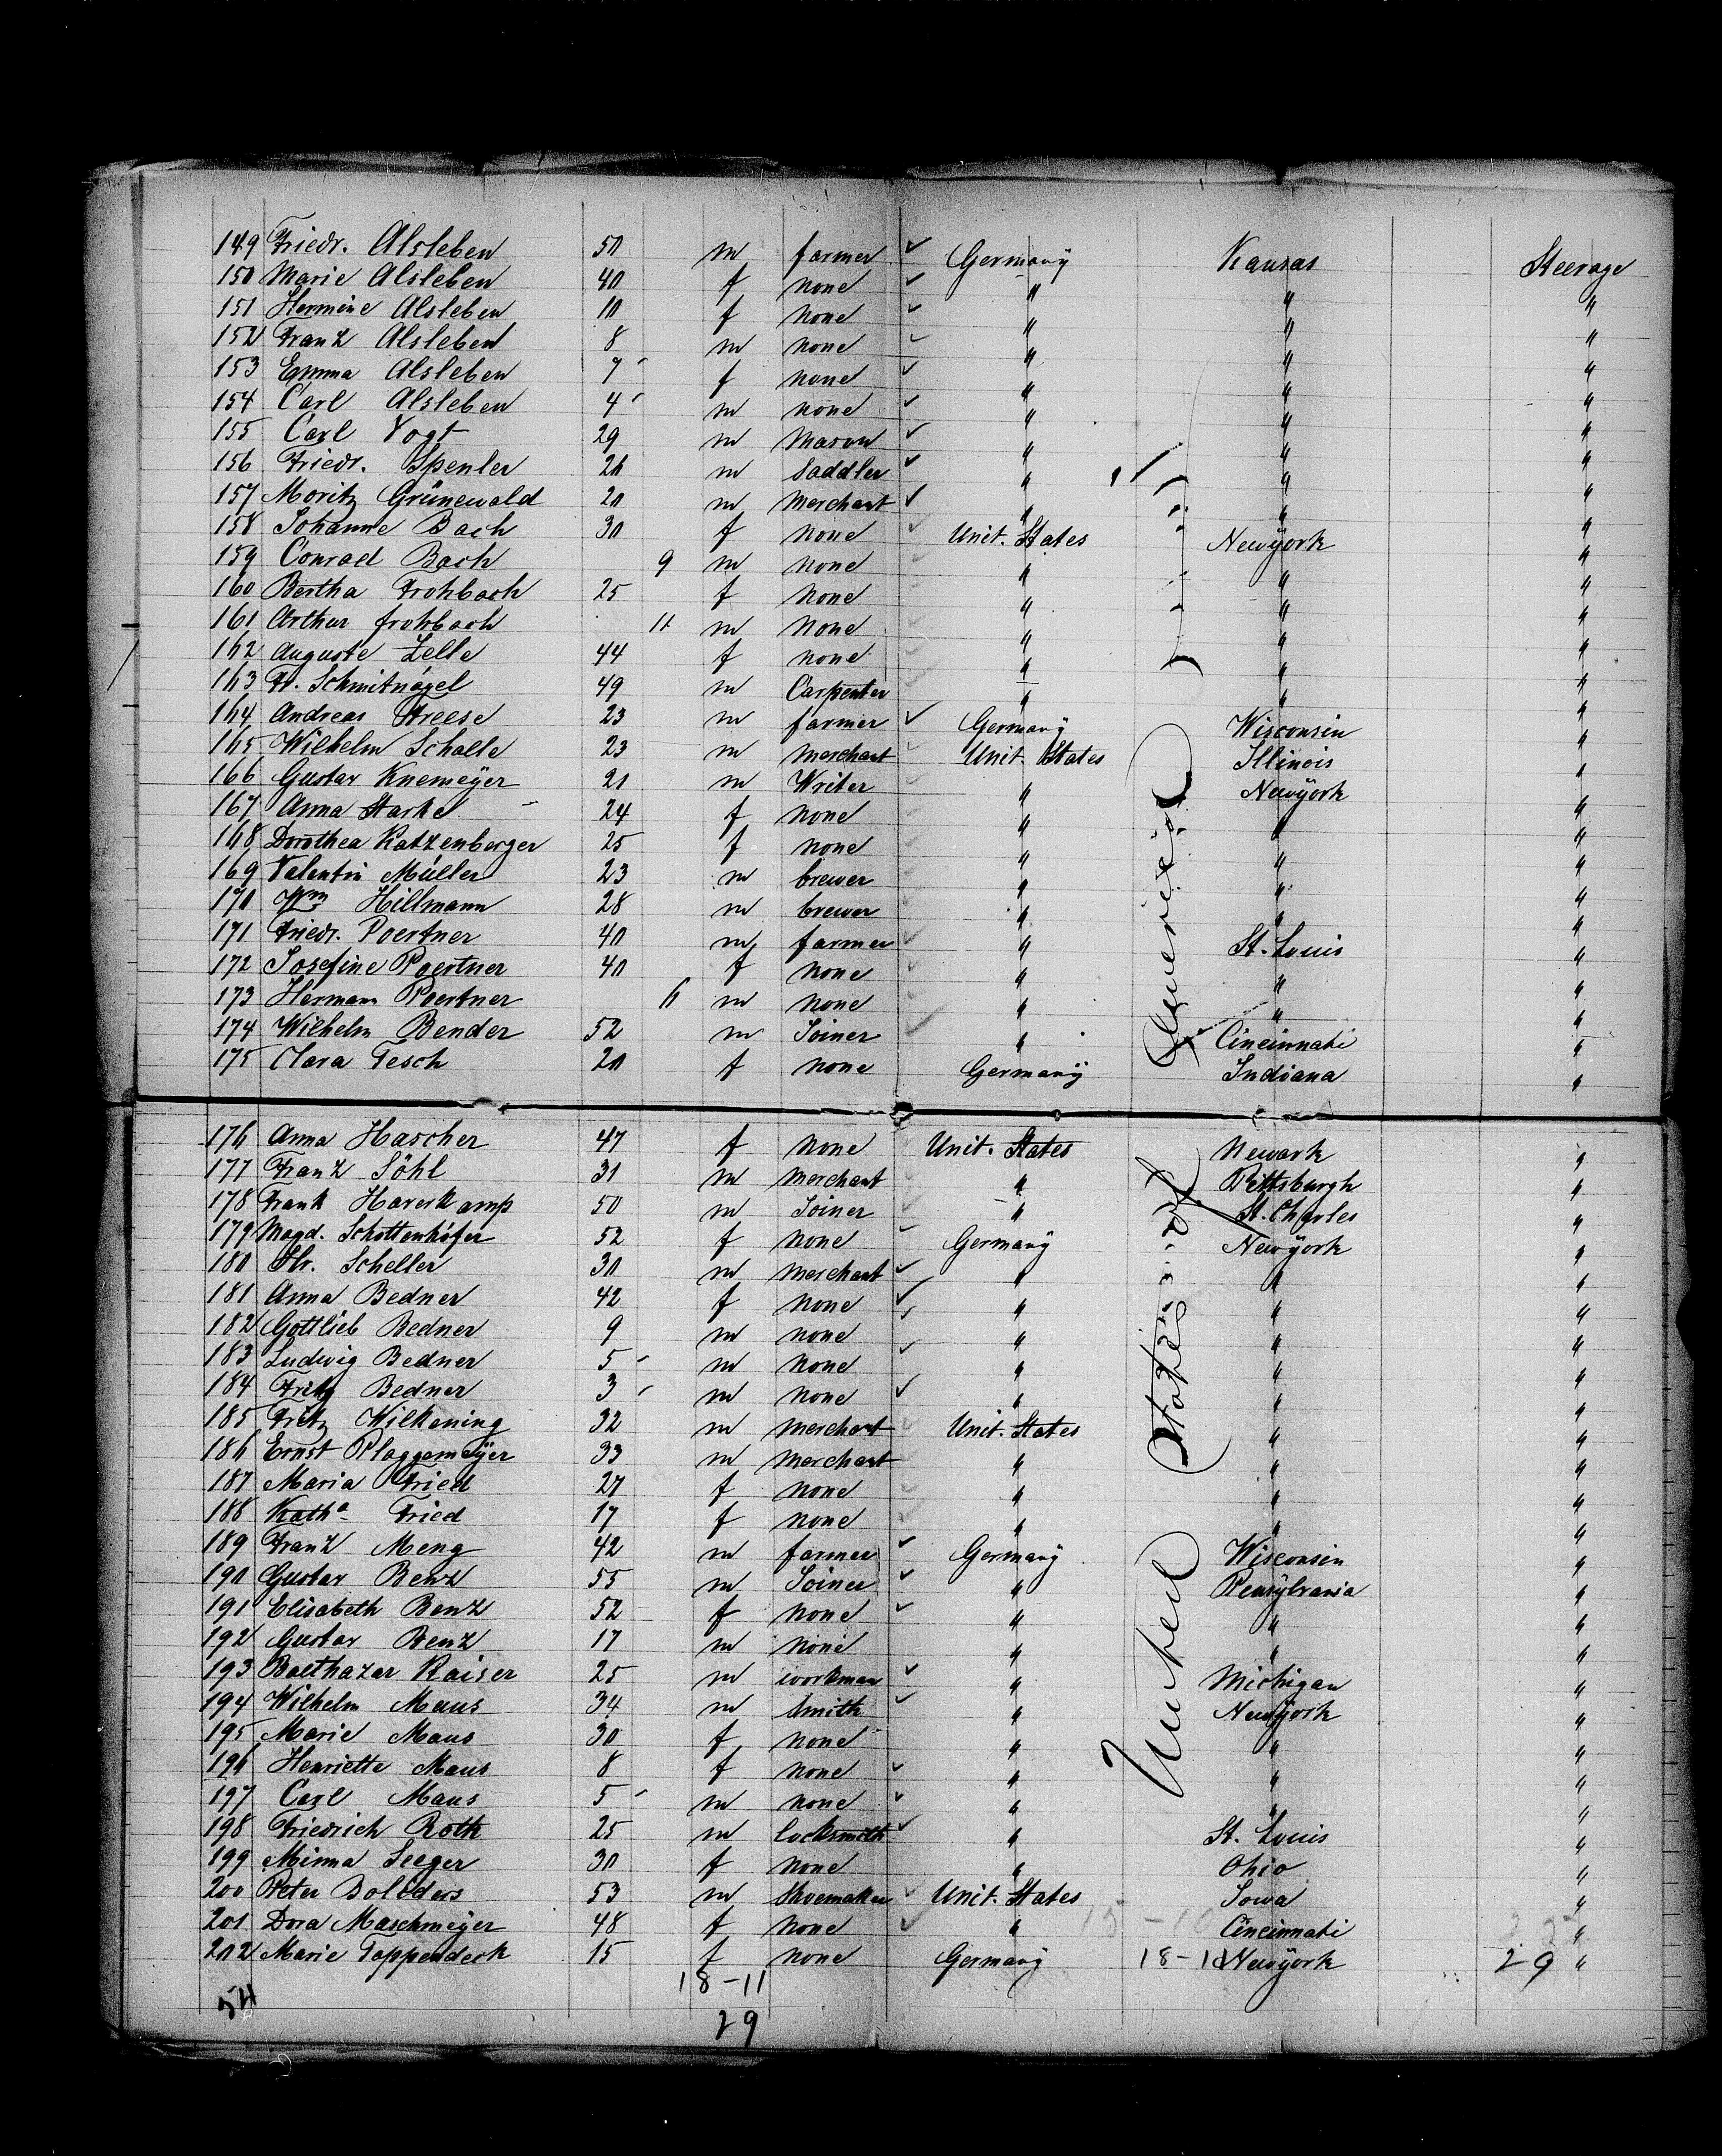 149 Friedr. Alsleben 50 m farmer ✓ Germany Kansas Steerage
150 Marie Alsleben 40 f none ✓ " " "
151 Hermine Alsleben 10 f none ✓ " " "
152 Franz Alsleben 8 m none ✓ " " "
153 Emma Alsleben 7 f none ✓ " " "
154 Carl Alsleben 4 m none ✓ " " "
155 Carl Vogt 29 m Mason ✓ " " "
156 Friedr. Spenler 26 m Saddler ✓ " " "
157 Moritz Grünewald 20 m Merchant ✓ " " "
158 Johanne Bach 30 f none Unit. States Newÿork "
159 Conrad Bach 9 m none " " "
160 Bertha Frohbach 25 f none " " "
161 Arthur frohbach 11 m none " " "
162 Auguste Zelle 44 f none " " "
163 Fr. Schmitnägel 49 m Carpenter " " "
164 Andreas Freese 23 m farmer ✓ Germany Wisconsin "
165 Wilhelm Schalle 23 m Merchant Unit. States Illinois "
166 Gustav Knemeÿer 21 m Writer " Newÿork "
167 Anna Starke 24 f none " " "
168 Dorothea Katzenberger 25 f none " " "
169 Valentin Müller 23 m brewer " " "
170 Wm Hillmann 28 m brewer " " "
171 Friedr. Poertner 40 m farmer " St. Louis "
172 Josefine Poertner 40 f none " " "
173 Hermann Poertner 6 m none " " "
174 Wilhelm Bender 52 m Joiner " Cincinnati "
175 Clara Tesch 20 f none Germanÿ Indiana "
176 Anna Hascher 47 f none Unit. States Newark "
177 Franz Söhl 31 m Merchant " Pittsburgh "
178 Frank Haverkamp 50 m Joiner " St. Charles "
179 Magd. Schottenhöfer 52 f none Germanÿ Newÿork "
180 Hr. Scheller 30 m Merchant ✓ " " "
181 Anna Bedner 42 f none ✓ " " "
182 Gottlieb Bedner 9 m none " " "
183 Ludwig Bedner 5 m none ✓ " " "
184 Fritz Bedner 3 m none ✓ " " "
185 Fritz Wilkening 32 m Merchant Unit. States " "
186 Ernst Plaggemeÿer 33 m Merchant " " "
187 Maria Fried 27 f none " " "
188 Katha Fried 17 f none " " "
189 Franz Meng 42 m farmer ✓ Germanÿ Wisconsin "
190 Gustav Benz 55 m Joiner ✓ " Pensÿlvania "
191 Elisabeth Benz 52 f none ✓ " " "
192 Gustav Benz 17 m none " " "
193 Balthazar Kaiser 25 m workman ✓ " Michigan "
194 Wilhelm Maus 34 m Smith ✓ " Newÿork "
195 Marie Maus 30 f none " " "
196 Henriette Maus 8 f none ✓ " " "
197 Carl Maus 5 m none ✓ " " "
198 Friedrich Roth 25 m locksmith ✓ " St. Louis "
199 Minna Seeger 30 f none " Ohio "
200 Peter Boldders 53 m Shoemaker Unit. States Iowa "
201 Dora Maschmeÿer 48 f none ✓ " Cincinnati "
202 Marie Toppendeck 15 f none Germanÿ 18-11 Newÿork 29 "
54 18-11
29
United States of America